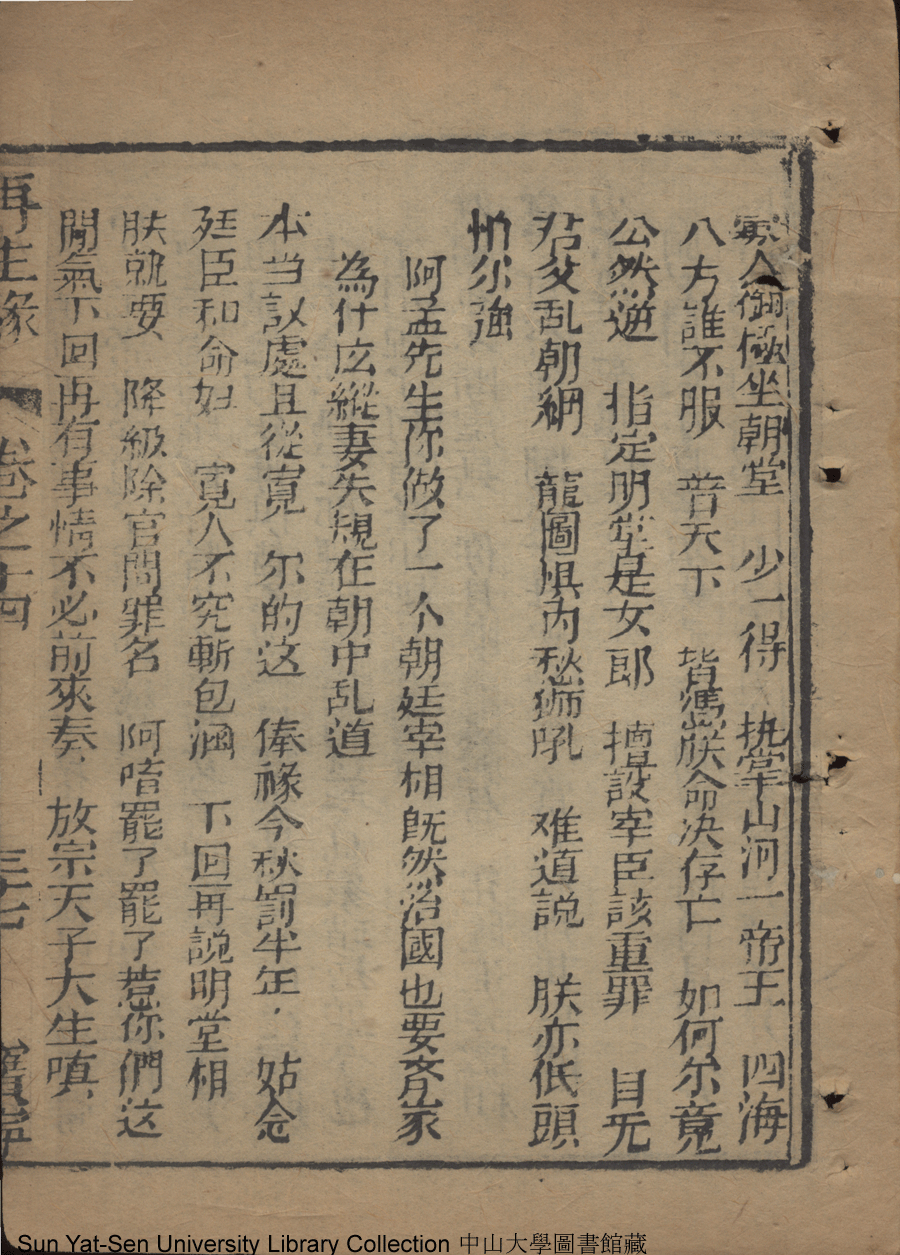 寡人御極坐朝堂 少一得 执掌山河一帝王 四海
八方誰不服 普天下 皆憑朕命决存亡 如何尔竟
公然逆 指定明堂是女郎 擅設宰臣該重罪 目无
君父乱朝綱 龍圖惧内愁狮吼 难道説 朕亦低頭
怕尔強
阿孟先生你做了一个朝廷宰相既然治國也要齐家
為什庅縱妻失規在朝中乱道
本当議處且從寛 尔的这 俸祿今秋罰半年 姑念
廷臣和命妇 寛人不究暫包涵 下回再説明堂相
朕就要 降級除官問罪名 阿唷罷了罷了惹你們这
閒氣下回再有事情不必前來奏 放宗天子大生嗔
再生緣 卷之十四 三十七
Sun Yat-Sen University Library Collection 中山大學圖書館藏